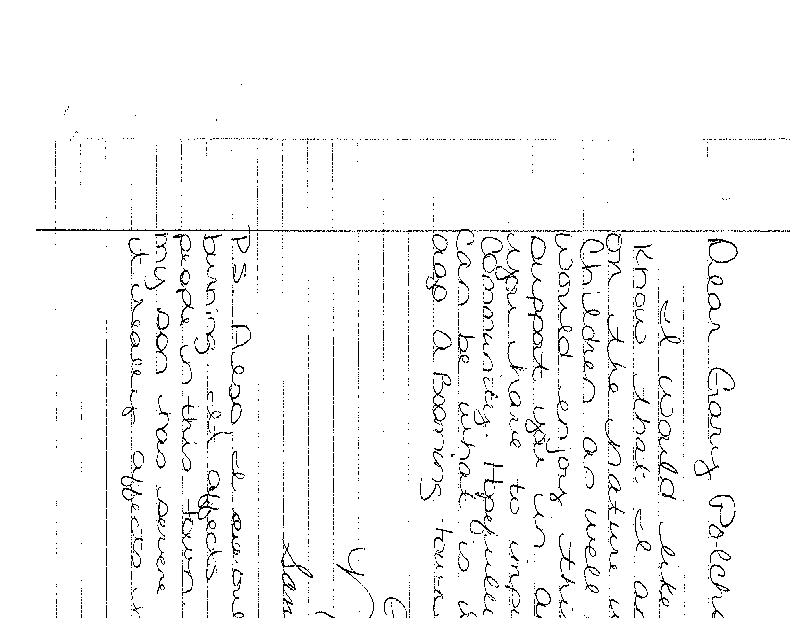 Dear Gary Polch
I would like
Know that. I a
on the nature w
Children as well
would enjoy this
support you in a
you have to imp
Community. Hopefully
Can be what is w
ago a Booming town
Y
San
PS. Also, I would
burning. It affects
people in this town
my son has severe
it really affects